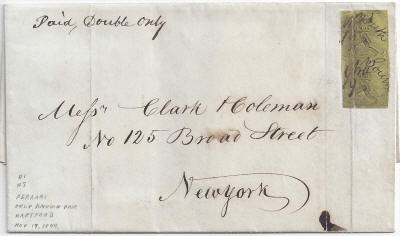 Paid, Double Only
Messrs Clark & Coleman
No 125 Broad Street
New York
FERRARI
ONLY KNOWN PAIR
HARTFORD
NOV 19, 1844